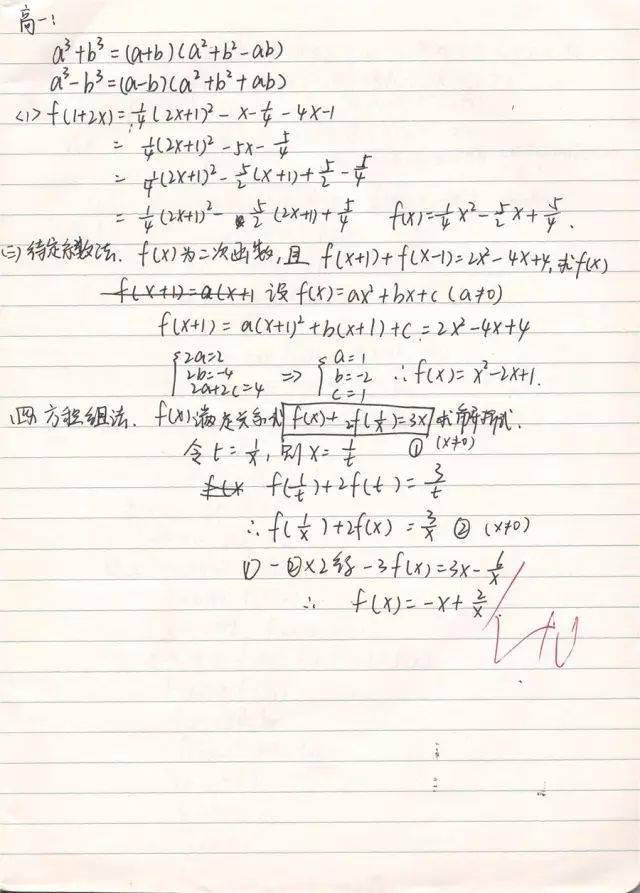 高一:
a³+b³=(a+b)(a²+b²-ab)
a³-b³=(a-b)(a²+b²+ab)
<1> f(1+2x)=¼(2x+1)²-x-¼-4x-1
= ¼(2x+1)²-5x-5/4
= ¼(2x+1)²-5/2(x+1)+5/2-5/4
= ¼(2x+1)²-5/2(2x+1)+5/4 f(x)=¼x²-5/2x+5/4.
(三)待定系数法. f(x)为二次函数,且 f(x+1)+f(x-1)=2x²-4x+4,求f(x)
f(x+1)=a(x+1 设 f(x)=ax²+bx+c (a≠0)
f(x+1)=a(x+1)²+b(x+1)+c=2x²-4x+4
{2a=2 2b=-4 2a+2c=4 => {a=1 b=-2 c=1 ∴f(x)=x²-2x+1.
(四)方程组法. f(x)满足关系式 f(x)+2f(1/x)=3x 求解析式.
令t=1/x,则x=1/t ① (x≠0)
f(x f(1/t)+2f(t)=3/t
∴f(1/x)+2f(x)=3/x ② (x≠0)
①-②×2得-3f(x)=3x-6/x
∴ f(x)=-x+2/x